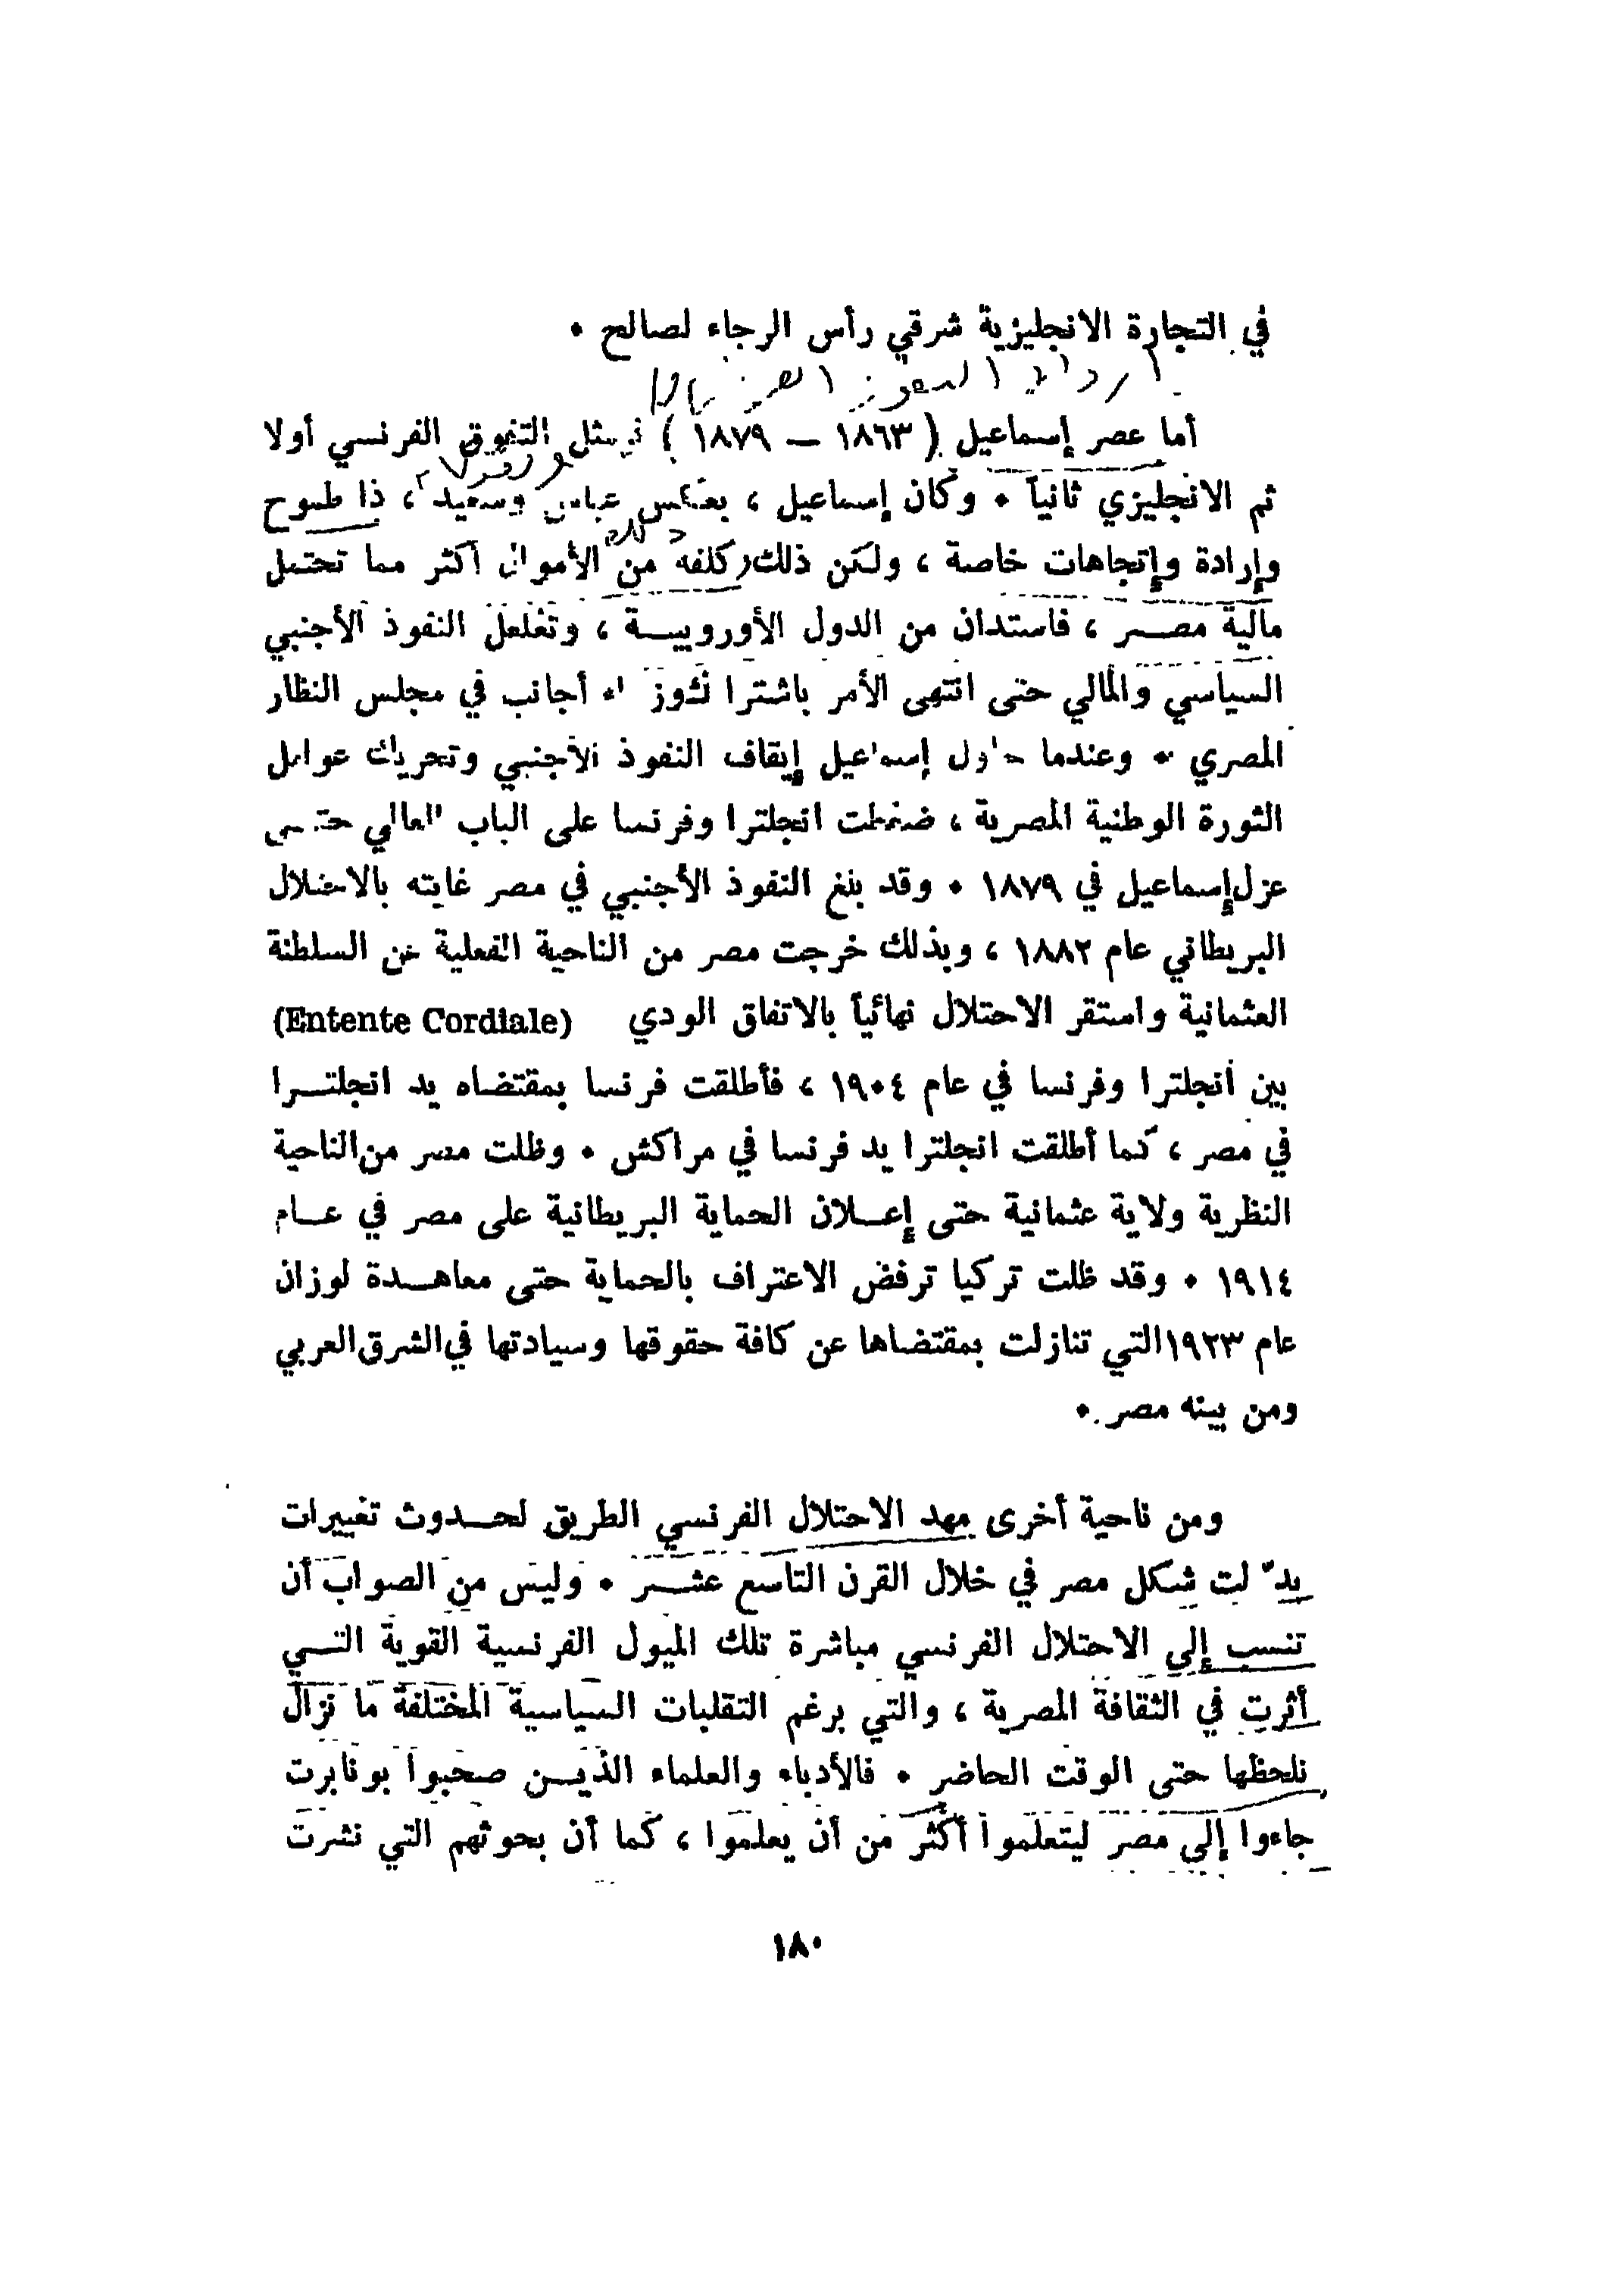 في التجارة الانجليزية شرقي رأس الرجاء لصالح .
أما عصر إسماعيل ( ١٨٦٣ — ١٨٧٩ ) فيمثل التفوق الفرنسي أولا
ثم الانجليزي ثانياً . وكان إسماعيل ، بعكس عباس وسعيد ، ذا طموح
وإرادة وإتجاهات خاصة ، ولكن ذلك كلفه من الأموال أكثر مما تحتمل
مالية مصر ، فاستدان من الدول الأوروبية ، وتغلغل النفوذ الأجنبي
السياسي والمالي حتى انتهى الأمر باشترا أجانب في مجلس النظار
المصري . وعندما حاول إسماعيل إيقاف النفوذ الأجنبي وتحريك عوامل
الثورة الوطنية المصرية ، ضغطت انجلترا وفرنسا على الباب العالي حتى
عزل إسماعيل في ١٨٧٩ . وقد بلغ النفوذ الأجنبي في مصر غايته بالاحتلال
البريطاني عام ١٨٨٢ ، وبذلك خرجت مصر من الناحية الفعلية عن السلطنة
العثمانية واستقر الاحتلال نهائياً بالاتفاق الودي (Entente Cordiale)
بين أنجلترا وفرنسا في عام ١٩٠٤ ، فأطلقت فرنسا بمقتضاه يد انجلترا
في مصر ، كما أطلقت انجلترا يد فرنسا في مراكش . وظلت مصر من الناحية
النظرية ولاية عثمانية حتى إعلان الحماية البريطانية على مصر في عام
١٩١٤ . وقد ظلت تركيا ترفض الاعتراف بالحماية حتى معاهدة لوزان
عام ١٩٢٣ التي تنازلت بمقتضاها عن كافة حقوقها وسيادتها في الشرق العربي
ومن بينه مصر .
ومن ناحية أخرى مهد الاحتلال الفرنسي الطريق لحدوث تغييرات
بدّلت شكل مصر في خلال القرن التاسع عشر . وليس من الصواب أن
تنسب إلى الاحتلال الفرنسي مباشرة تلك الميول الفرنسية القوية التي
أثرت في الثقافة المصرية ، والتي برغم التقلبات السياسية المختلفة ما نزال
نلحظها حتى الوقت الحاضر . فالأدباء والعلماء الذين صحبوا بونابرت
جاءوا إلى مصر ليتعلموا أكثر من أن يعلموا ، كما أن بحوثهم التي نشرت
١٨٠